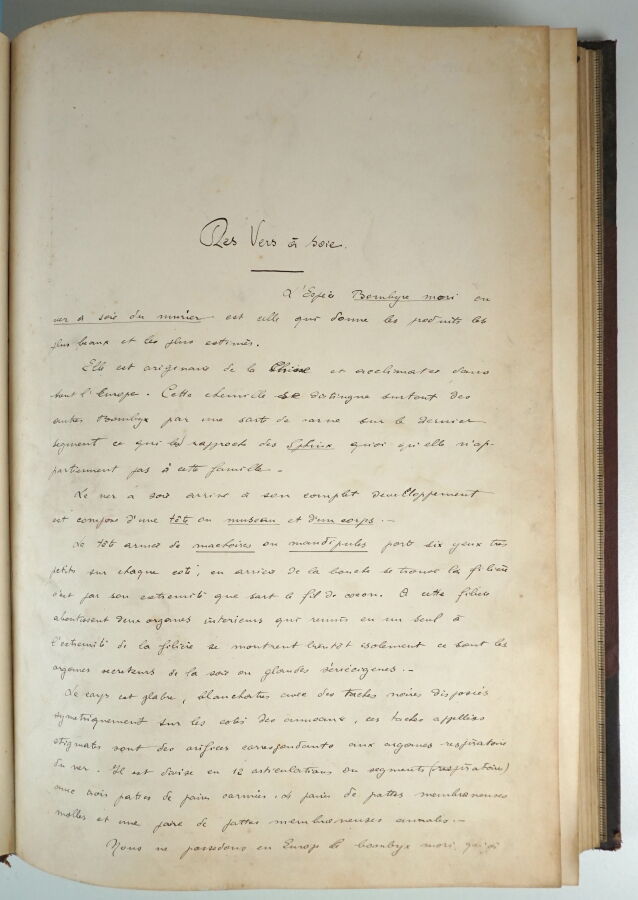 Des Vers à soie.
L'Espèce Bombyx mori ou
ver à soie du murier est celle qui donne les produits les
plus beaux et les plus estimés.
Elle est originaire de la Chine et acclimatée dans
tout l'Europe. Cette chenille se distingue surtout des
autres Bombyx par une sorte de corne sur le dernier
segment ce qui les rapproche des Sphinx quoi qu'elle n'ap-
partiennent pas à cette famille.
Le ver à soie arrivé à son complet développement
est composé d'une tête ou museau et d'un corps.
La tête armée de machoires ou mandipules porte six yeux très
petits sur chaque coté, en arrière de la bouche se trouve la filière
c'est par son extremité que sort le fil de cocon. A cette filière
aboutissent deux organes interieurs qui reunis en un seul à
l'extremité de la filière se montrent bientôt isolement ce sont les
organes secreteurs de la soie ou glandes séricigenes.
Le corps est glabre, blanchatre avec des taches noires disposées
symetriquement sur les cotés des anneaux, ces taches appelées
stigmates sont des orifices correspondants aux organes respiratoires
du ver. Il est divisé en 12 articulations ou segments (respiratoires)
avec trois pattes de paires cornées, paires de pattes membraneuses
molles et une paire de pattes membraneuses annales.
Nous ne possedons en Europe le bombyx mori qui